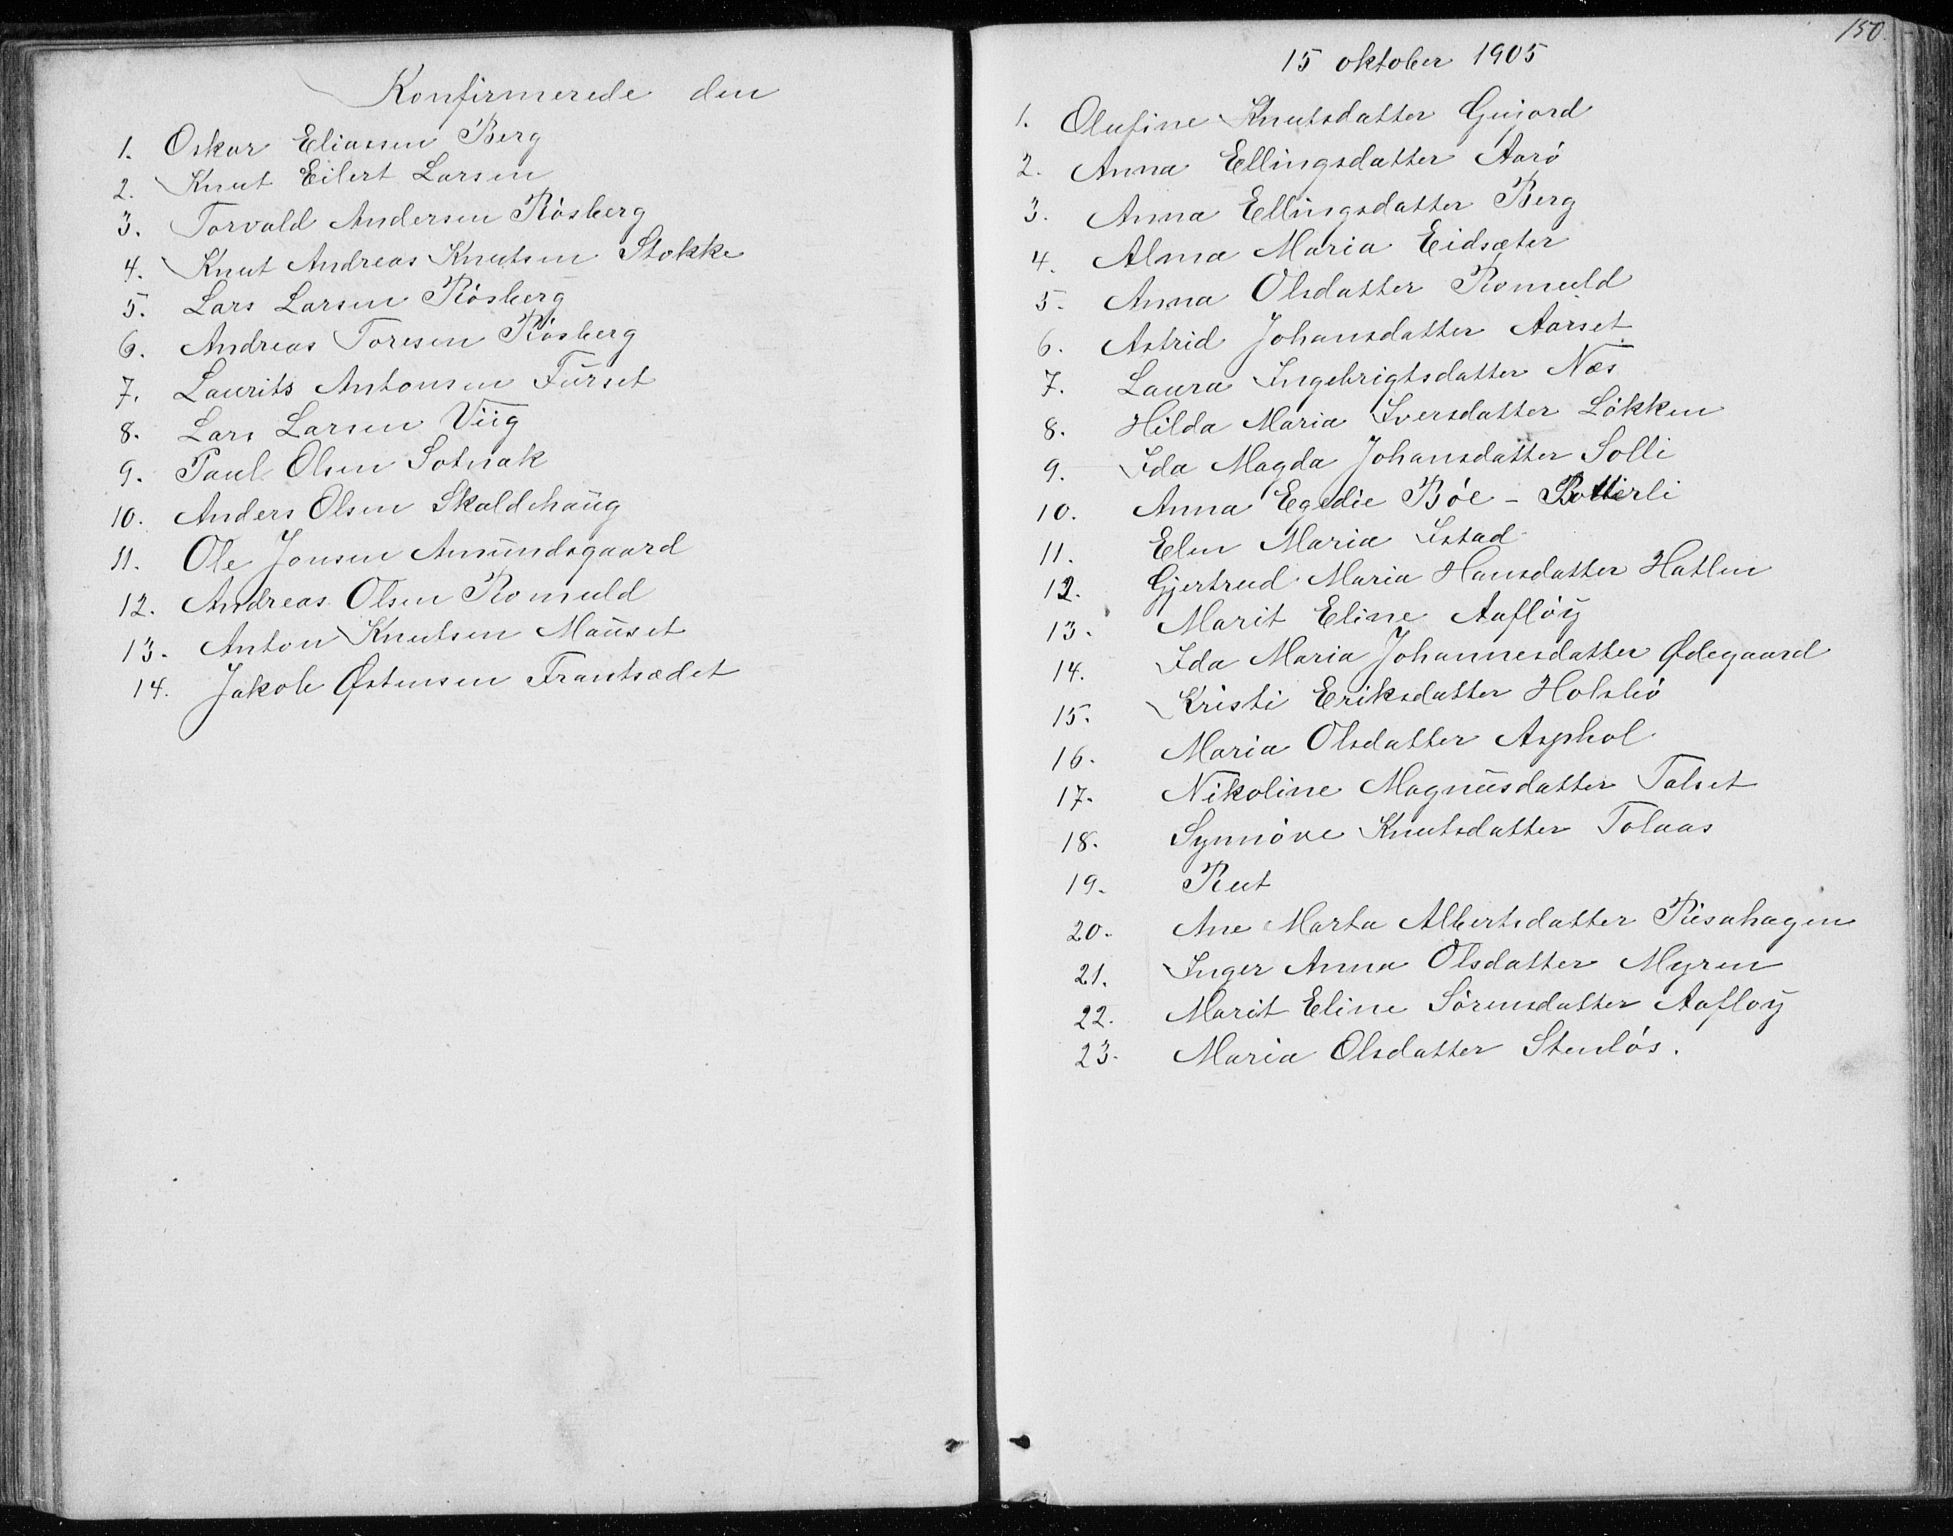 Konfirmerede den
1. Oskar Eliassen Berg
2. Knut Eilert Larsen
3. Torvald Andersen Rösberg
4. Knut Andreas Knutsen Stokke
5. Lars Larsen Rösberg
6. Andreas Toresen Rösberg
7. Laurits Antonsen Furset
8. Lars Larsen Viig
9. Paul Olsen Sotnak
10. Anders Olsen Skaldehaug
11. Ole Jonsen Amundsgaard
12. Andreas Olsen Romuld
13. Anton Knutsen Mauset
14. Jakob Østensen Frantsædet
150.
15 oktober 1905
1. Olufine Knutsdatter Gujord
2. Anna Ellingsdatter Aarö
3. Anna Ellingsdatter Berg
4. Alma Maria Eidsæter
5. Anna Olsdatter Romuld
6. Astrid Johansdatter Aarset
7. Laura Ingebrigtsdatter Næs
8. Hilda Maria Iversdatter Lökken
9. Ida Magda Johansdatter Solli
10. Anna Egedie Böe -
11. Elen Maria Istad
12. Gjertrud Maria Hansdatter Hatlen
13. Marit Eline Aaflöy
14. Ida Maria Johannesdatter Ødegaard
15. Kristi Eriksdatter Holsbö
16. Maria Olsdatter Asphol
17. Nikoline Magnusdatter Talset
18. Synnöve Knutsdatter Tolaas
19. Rut
20. Ane Marta Albertsdatter Risahagen
21. Inger Anna Olsdatter Myren
22. Marit Eline Sörensdatter Aafloy
23. Maria Olsdatter Stenlös.